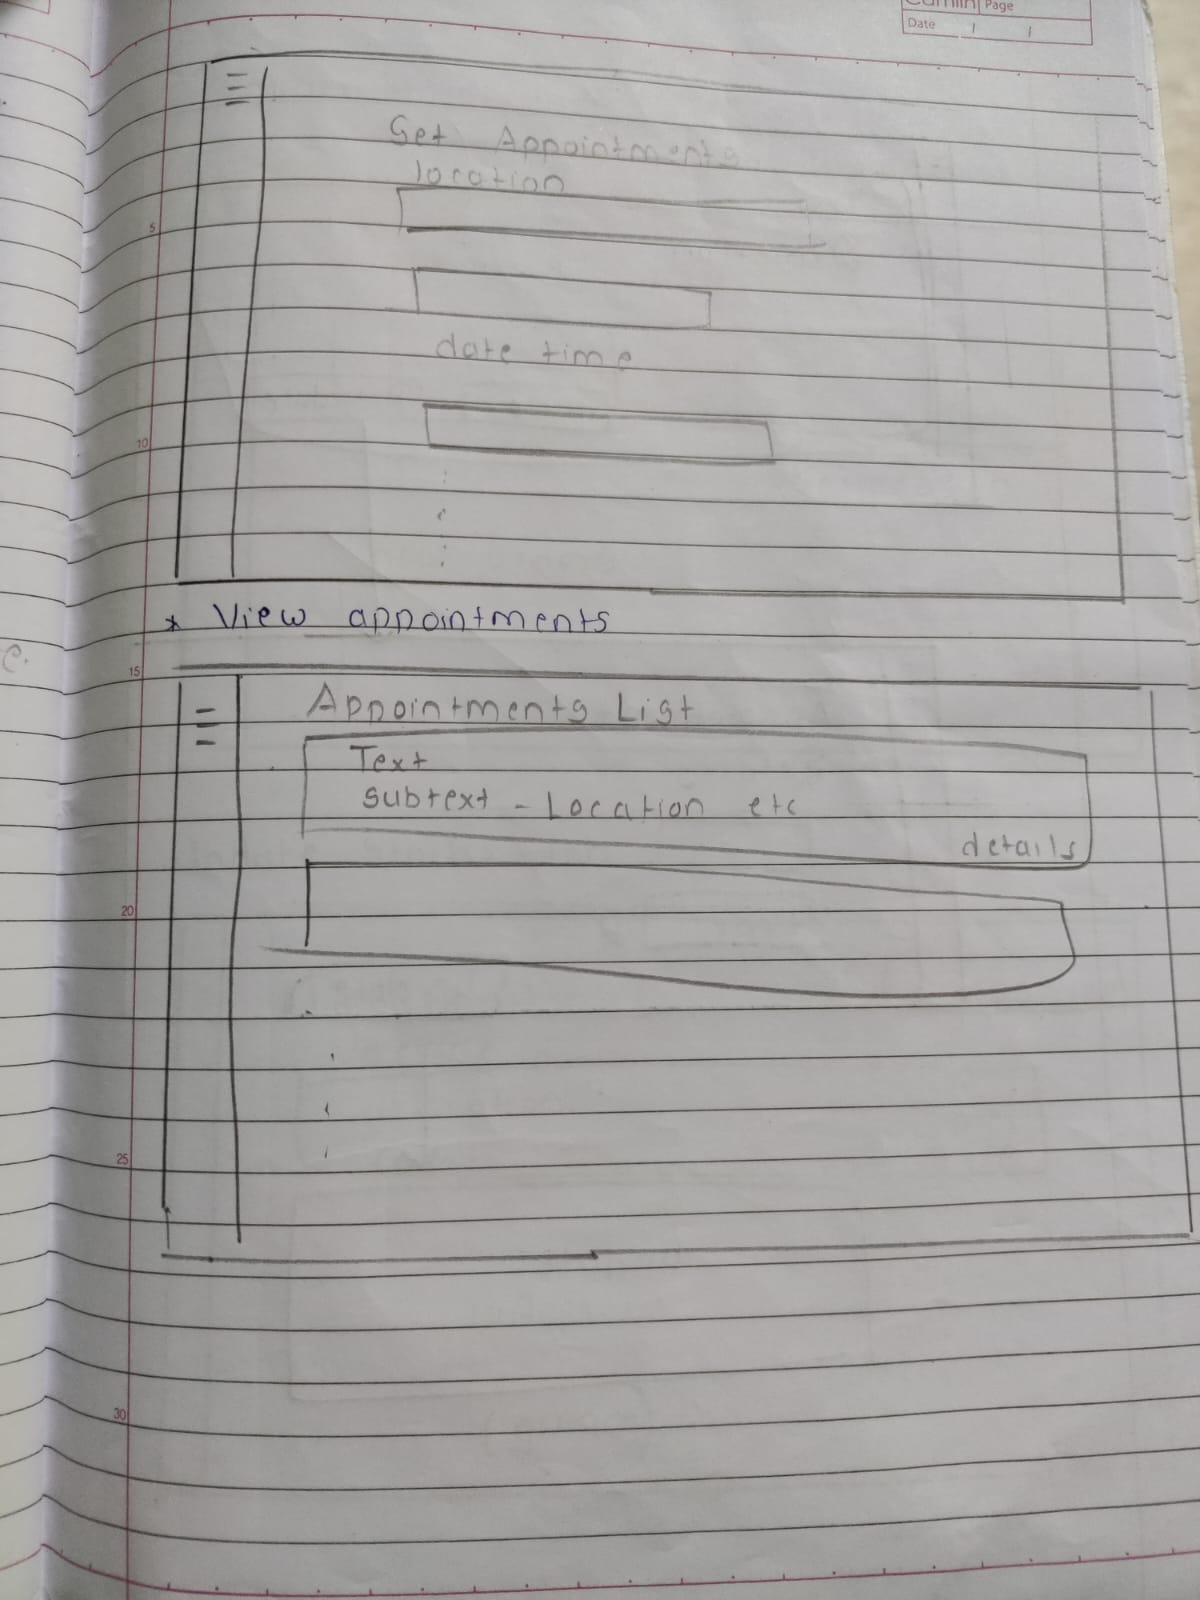 Page
Date / /
Get Appointments
location
5
date time
10
* View appointments
15
Appointments List
Text
subtext - Location etc
details
20
25
30